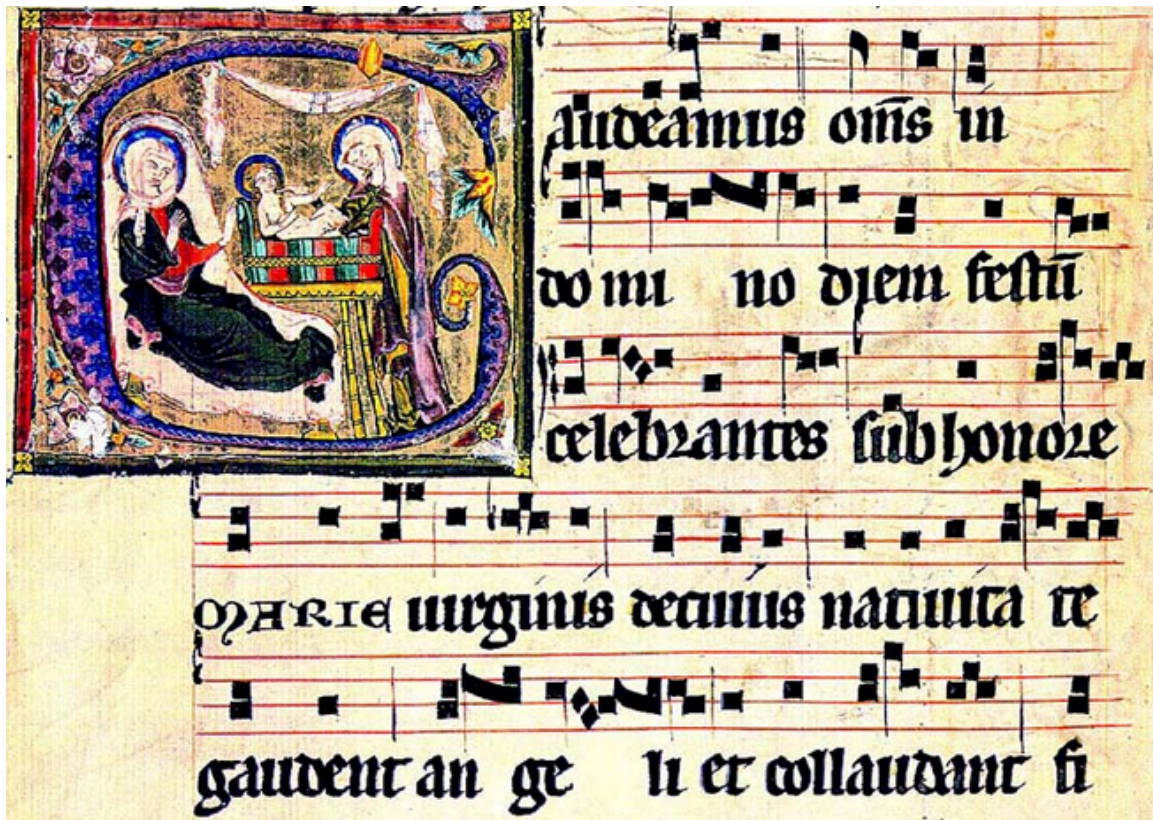 Gaudeamus om̄s in
do mi no diem festū
celebrantes sub honore
MARIE uirginis decuius natiuita te
gaudent an ge li et collaudant fi